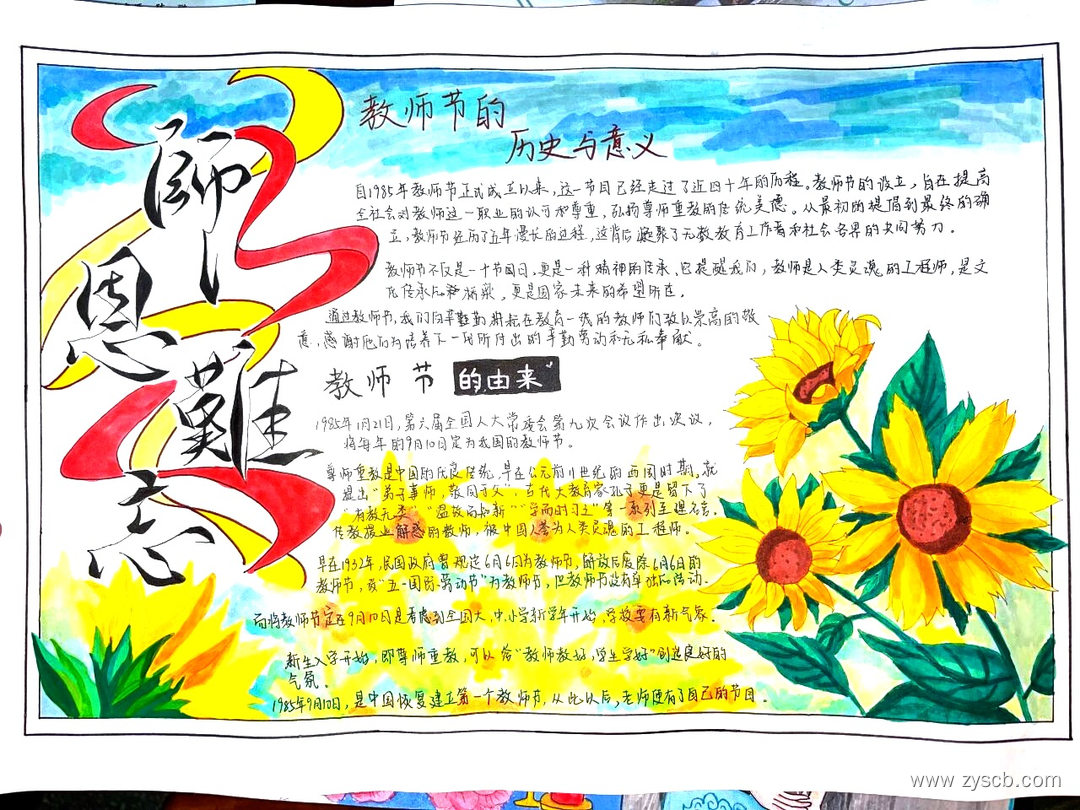 師
恩
難
忘
教师节的
历史与意义
自1985年教师节正式成立以来，这一节日已经走过了近四十年的历程。教师节的设立，旨在提高
全社会对教师这一职业的认可和尊重，弘扬尊师重教的传统美德。从最初的提倡到最终的确
立，教师节经历了五年漫长的过程，这背后凝聚了无数教育工作者和社会各界的共同努力。
教师节不仅是一个节日，更是一种精神的传承。它提醒我们，教师是人类灵魂的工程师，是文
化传承的桥梁，更是国家未来的希望所在。
通过教师节，我们向辛勤耕耘在教育一线的教师们致以崇高的敬
意，感谢他们为培养下一代所付出的辛勤劳动和无私奉献。
教师节的由来
1985年1月21日，第六届全国人大常委会第九次会议作出决议，
将每年的9月10日定为我国的教师节。
尊师重教是中国的优良传统，早在公元前11世纪的西周时期，就
提出"弟子事师，敬同于父"，古代大教育家孔子更是留下了
"有教无类""温故而知新""学而时习之"等一系列至理名言。
传教授业解惑的教师，被中国人誉为人类灵魂的工程师。
早在1932年，民国政府曾规定6月6日为教师节，解放后废除6月6日的
教师节，改"五一国际劳动节"为教师节，但教师节没有单独的活动。
而将教师节定在9月10日是考虑到全国大、中、小学新学年开始，学校要有新气象。
新生入学开始，即尊师重教，可以给"教师教好，学生学好"创造良好的
气氛。
1985年9月10日，是中国恢复建立第一个教师节，从此以后，老师便有了自己的节日。
www.zyscb.com